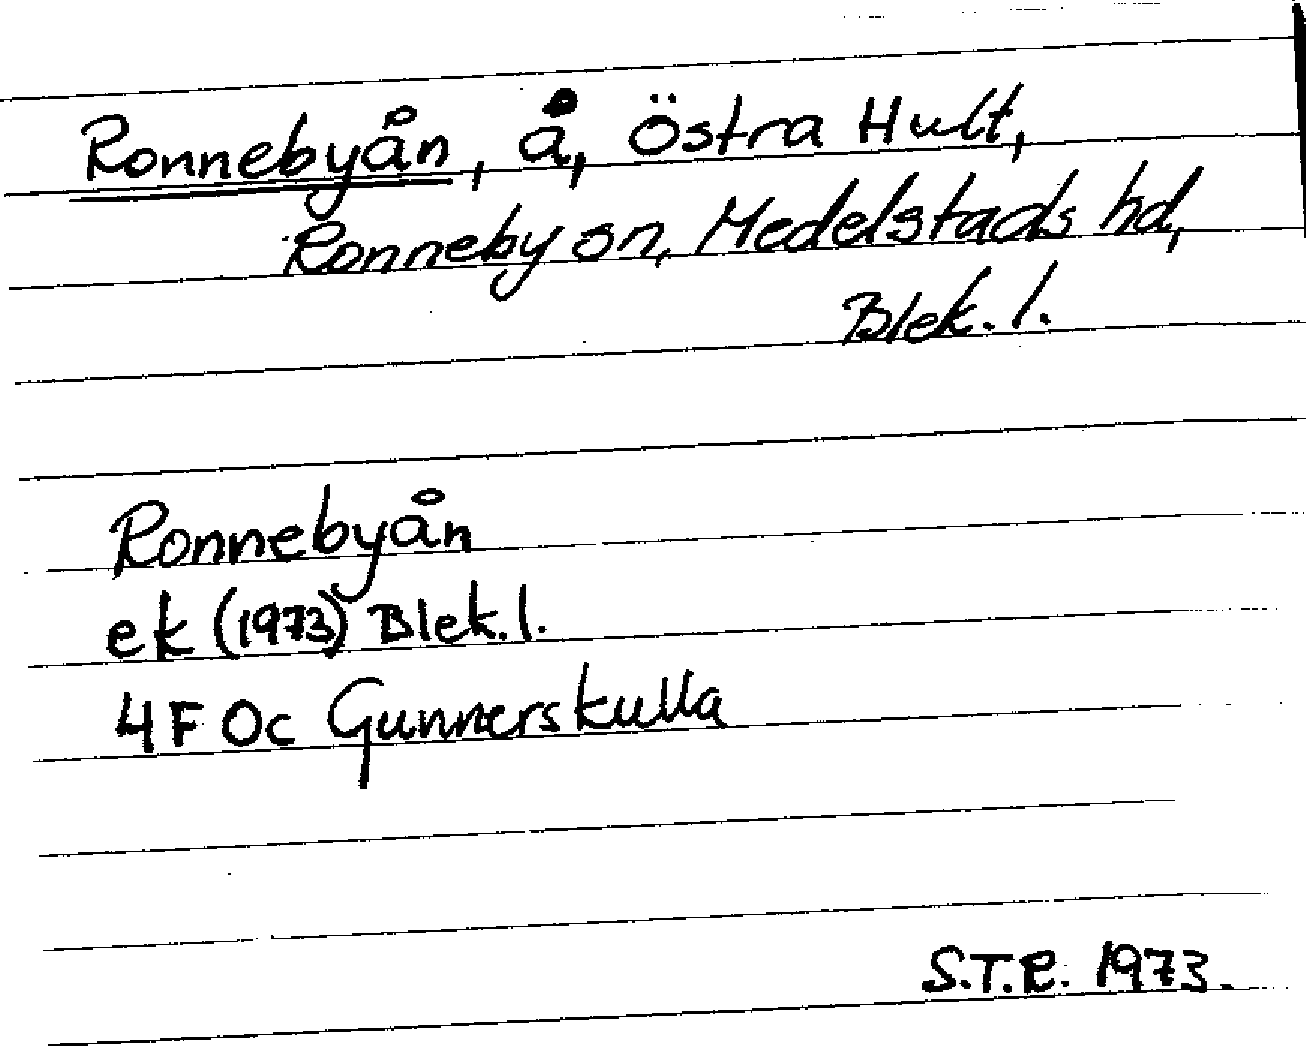 Ronnebyån, å, Östra Hult,
Ronneby sn, Medelstads hd,
Blek. l.
Ronnebyån
ek (1973) Blek. l.
4 F Oc Gunnerskulla
S.T.R. 1973.